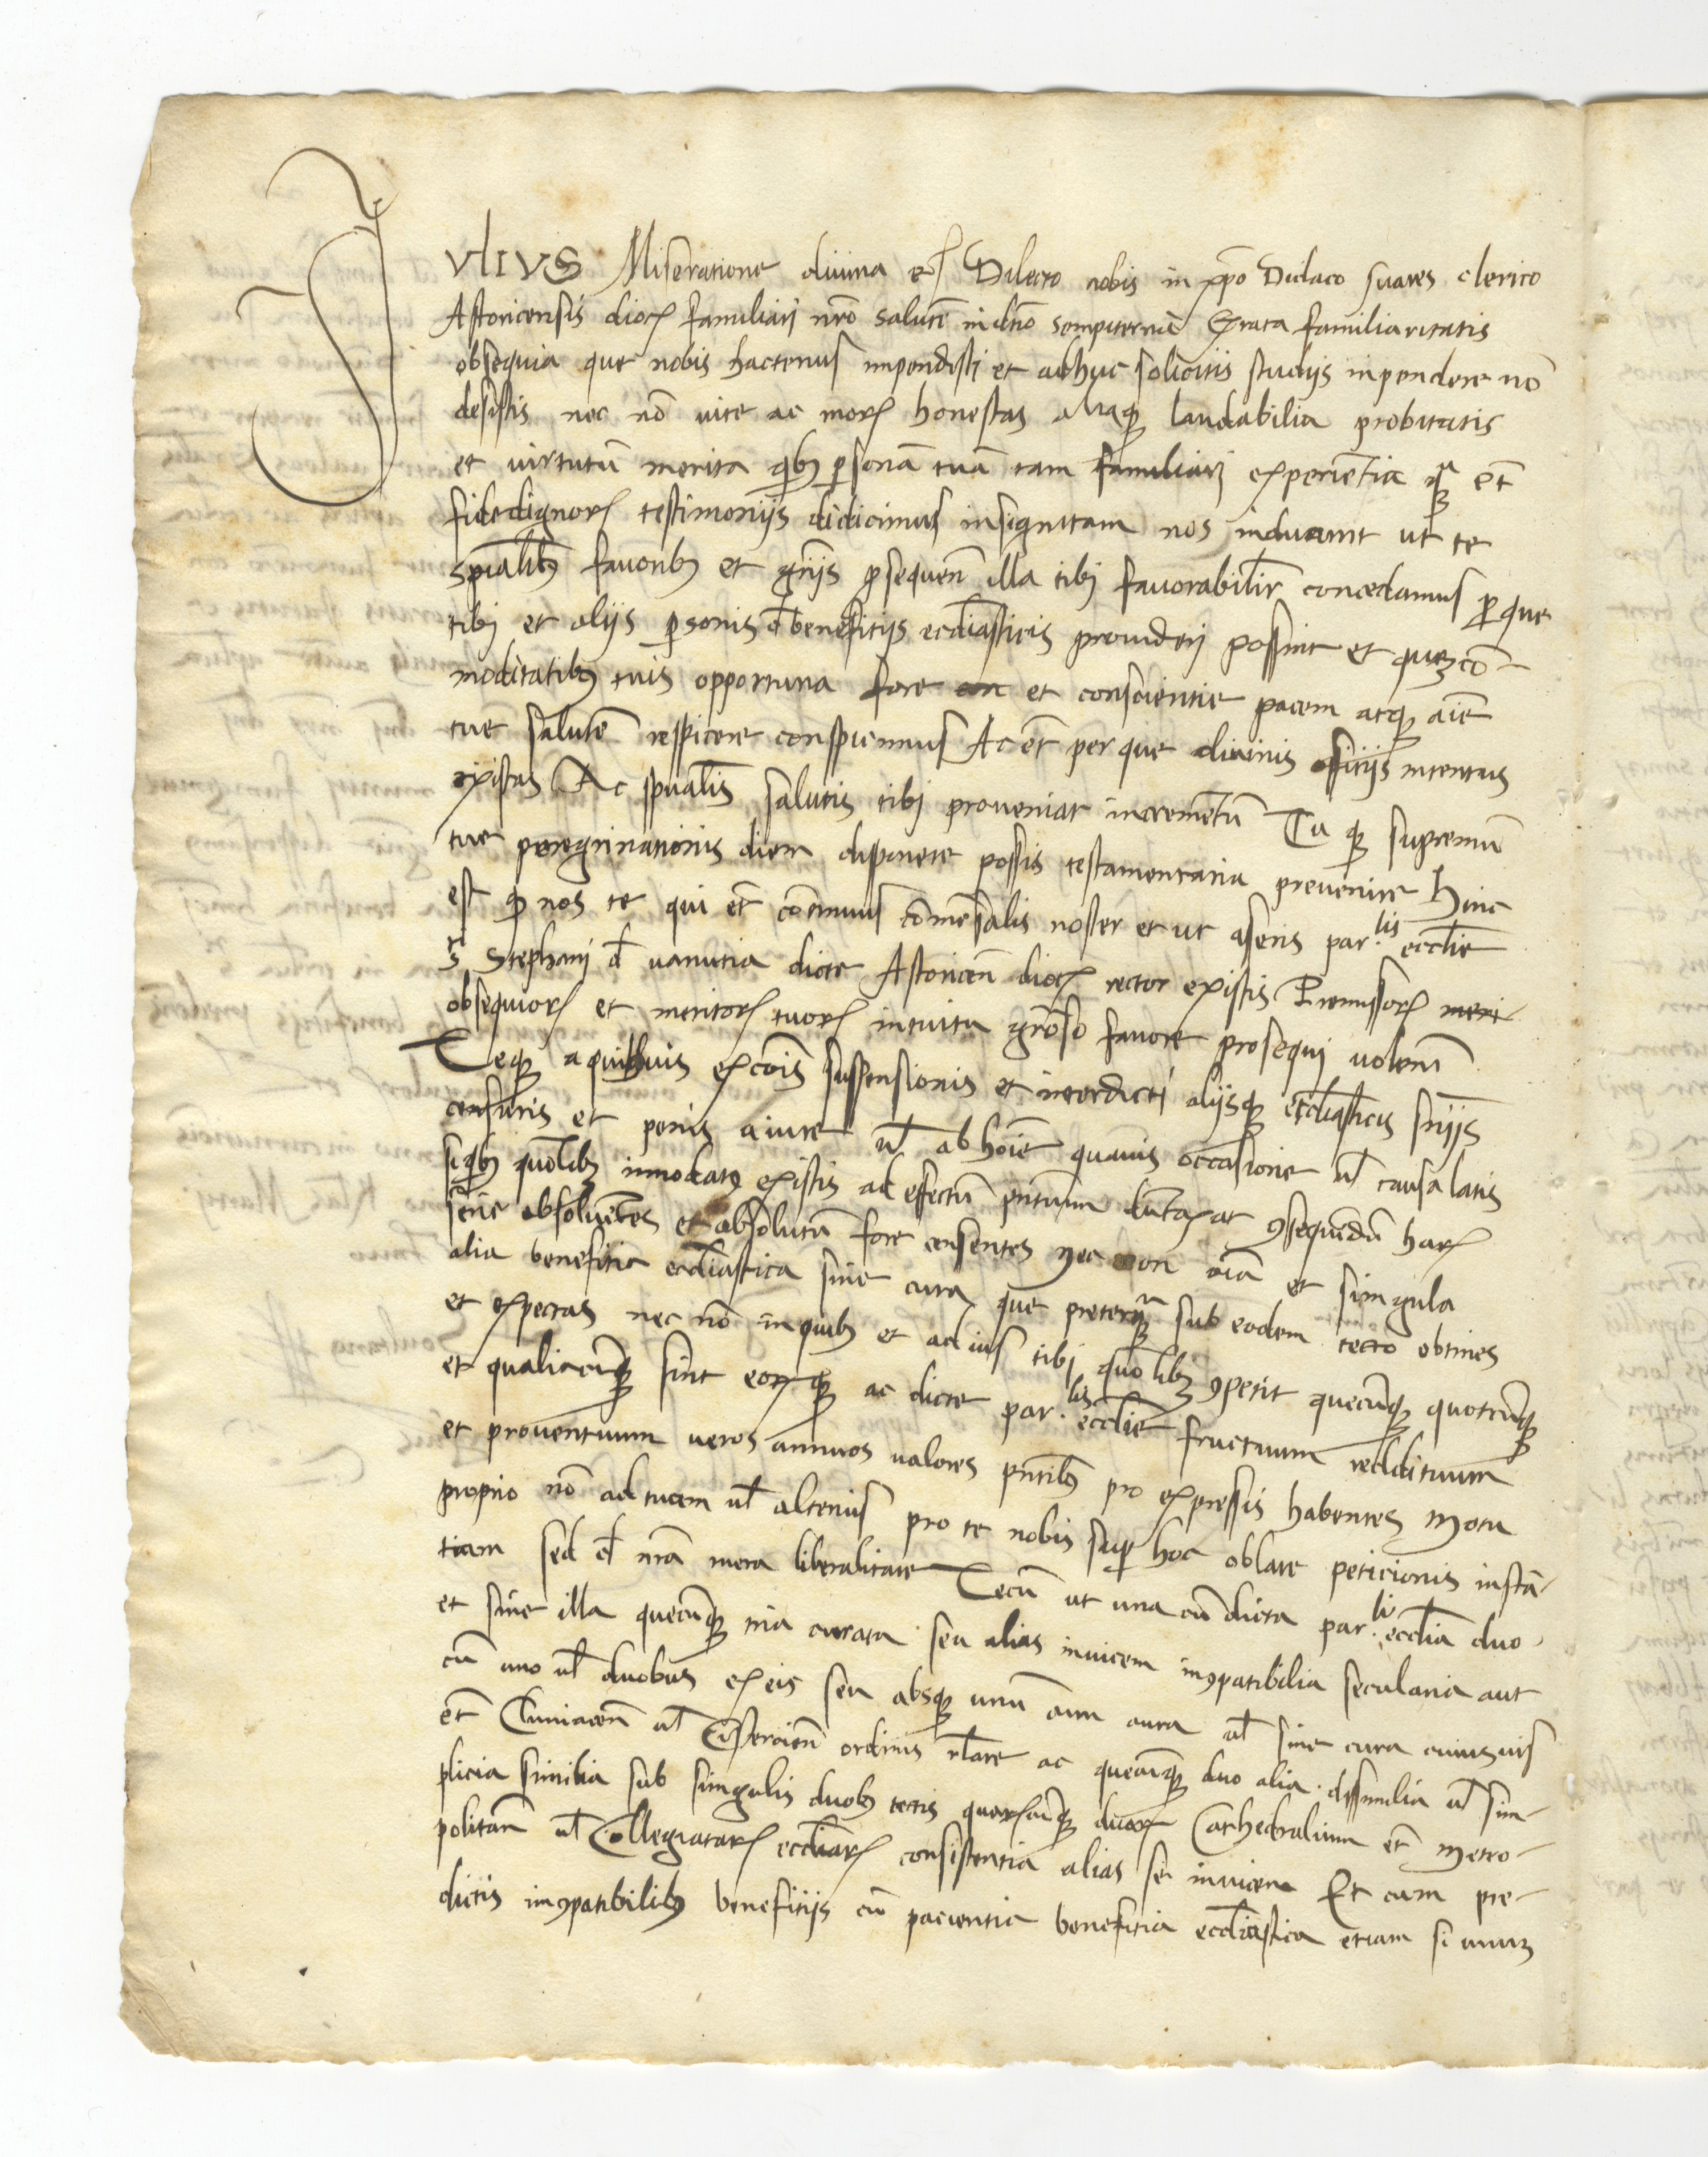 JVLIVS Miseratione diuina etc Dilecto nobis in xpo Didaco suares clerico
Astoricensis dioc familiari nro salutē in dno sempiternā Grata familiaritatis
obsequia que nobis hactenus impendisti et adhuc solicitis studijs inpendere nō
desistis nec nō vite ac morꝝ honestas aliaqꝫ laudabilia probitatis
et virtutū merita qbꝫ ꝑsonā tuā tam familiari experiētia qꝫ et
fidedignorꝝ testimonijs didicimus insignitam nos inducunt ut te
spialibꝫ fauoribꝫ et gratijs ꝓsequen̄ illa tibi fauorabilir concedamus ꝑ que
tibi et alijs ꝑsonis d̄ benefitijs eccliasticis prouideri possint et queꝫ cō-
moditatibꝫ tuis opportuna fore et conscientie pacem atqꝫ aīe
tue salutē respicere conspicimus Ac et̄ per que diuinis offitijs intentus
existas Ac spualis salutis tibi proueniat incremētū Tu qꝫ supremū
tue peregrinationis diem disponere possis testamentaria preuenire Hinc
est qꝫ nos te qui et̄ cōtinuus cōmēsalis noster et ut asseris par.lis ecclie
s̄ti Stephani d̄ vanutia dicte Astoricen̄ dioc rector existis Premissorꝝ meri-
obsequiorꝝ et meritorꝝ tuorꝝ intuitu grōso fauore prosequi volen̄
Teqꝫ a quibusuis excōis suspensionis et interdicti alijsqꝫ eccliasticis sn̄ijs
censuris et penis a iure ul̄ ab hoīe quauis occasione ul̄ causa latis
si qbꝫ quōlibꝫ innodatꝰ existis ad efectū pn̄tium dūtaxat ꝯsequendū harꝝ
serie absoluētes et absolutū fore censentes nec non oīa et singula
alia benefitia eccliastica sine cura que preterqꝫ sub eodem tecto obtines
et expectas nec nō in quibꝫ et ad ius tibi quōlibꝫ ꝯpetit quecūqꝫ quotcūqꝫ
et qualiacūqꝫ sint eorꝝqꝫ ac dicte par.lis ecclie fructuum reddituum
et prouentuum veros annuos valores pn̄tibꝫ pro expressis habentes Motu
proprio nō ad tuam ul̄ alterius pro te nobis suꝑ hoc oblate peticionis instā-
tiam sed d̄ nr̄a mera liberalitate Tecū ut una cū dicta par.li ecclia duo
et sine illa quecūqꝫ tria curata seu alias inuicem inꝯpatibilia secularia aut
cū uno ul̄ duobus ex eis seu absqꝫ unū cum cura ul̄ sine cura cuiusuis
et̄ Cluniacen̄ ul̄ Cistercien̄ ordinis rl̄are ac quecūqꝫ duo alia dissimilia ul̄ sim-
plicia similia sub singulis duobꝫ tectis quarꝝcūqꝫ duarꝝ Cathedralium et̄ Metro-
politan̄ ul̄ Collegiatarꝝ eccliarꝝ consistentia alias se inuicem Et cum pre-
dictis inꝯpatibilibꝫ benefitijs cū pacientia benefitia eccliastica etiam si unuꝫ